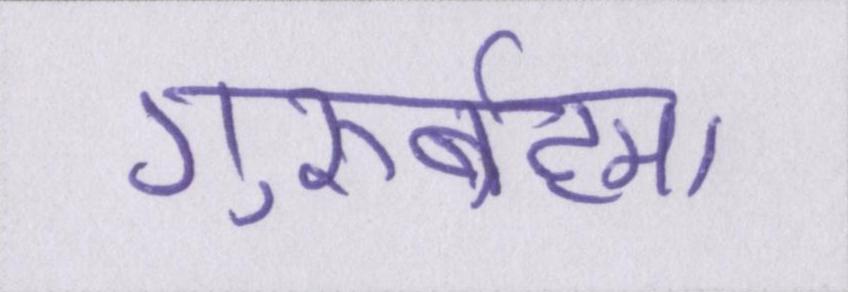 गुरुर्ब्रह्मा